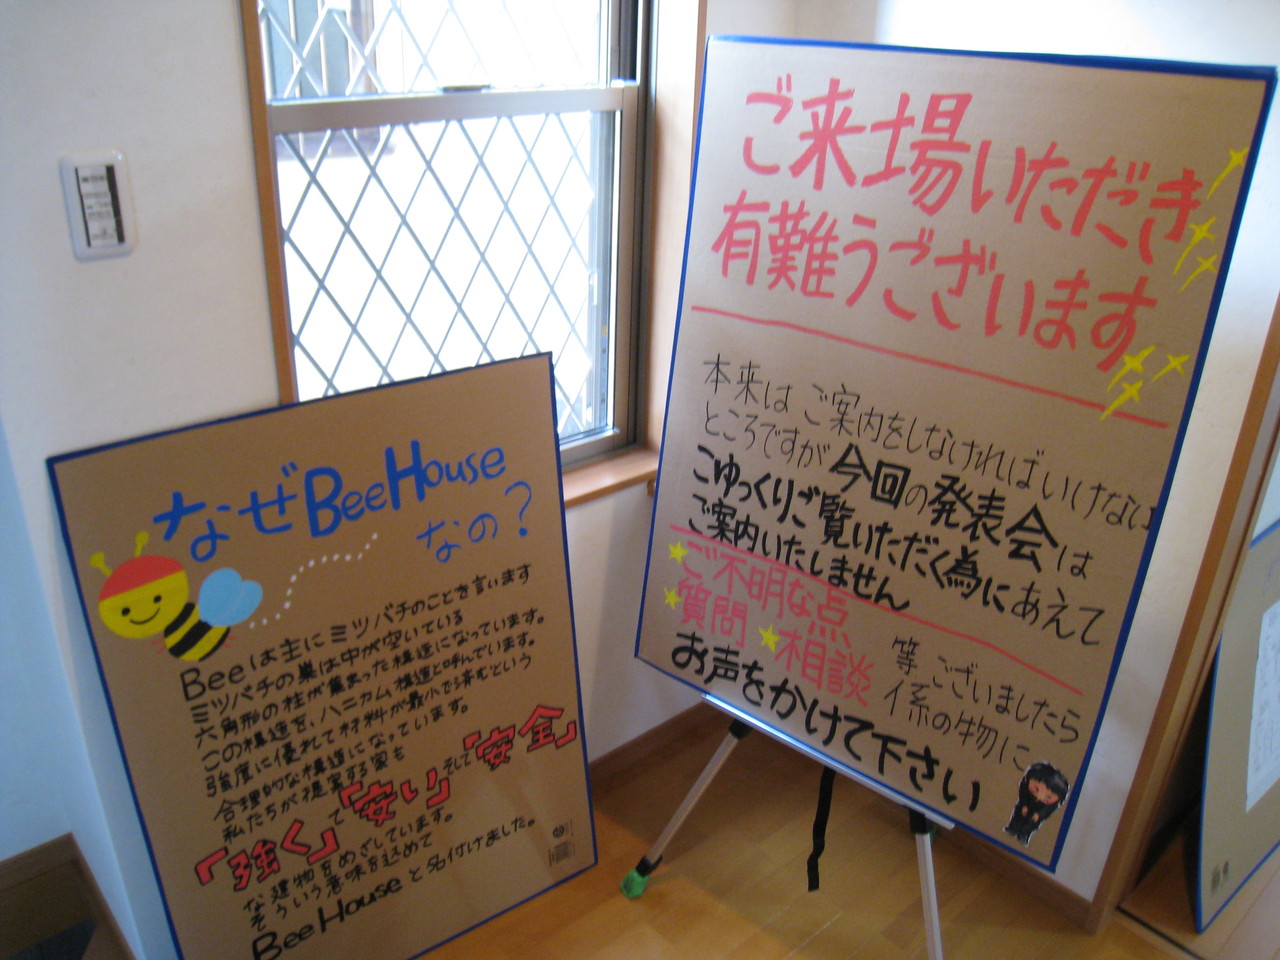 なぜBeeHouse
なの？
Beeは主にミツバチのことを言います
ミツバチの巣は中が空いている
六角形の柱が集まった構造になっています。
この構造を、ハニカム構造と呼んでいます。
強度に優れて材料が最小で済むという
合理的な構造になっています。
私たちが提案する家も
「強く」て「安い」そして「安全」
な建物をめざしています。
そういう意味を込めて
BeeHouseと名付けました。
ご来場いただき
有難うございます
本来はご案内をしなければいけない
ところですが今回の発表会は
ごゆっくりご覧いただく為にあえて
ご案内いたしません
ご不明な点
質問 相談 等ございましたら
係の物に
お声をかけて下さい